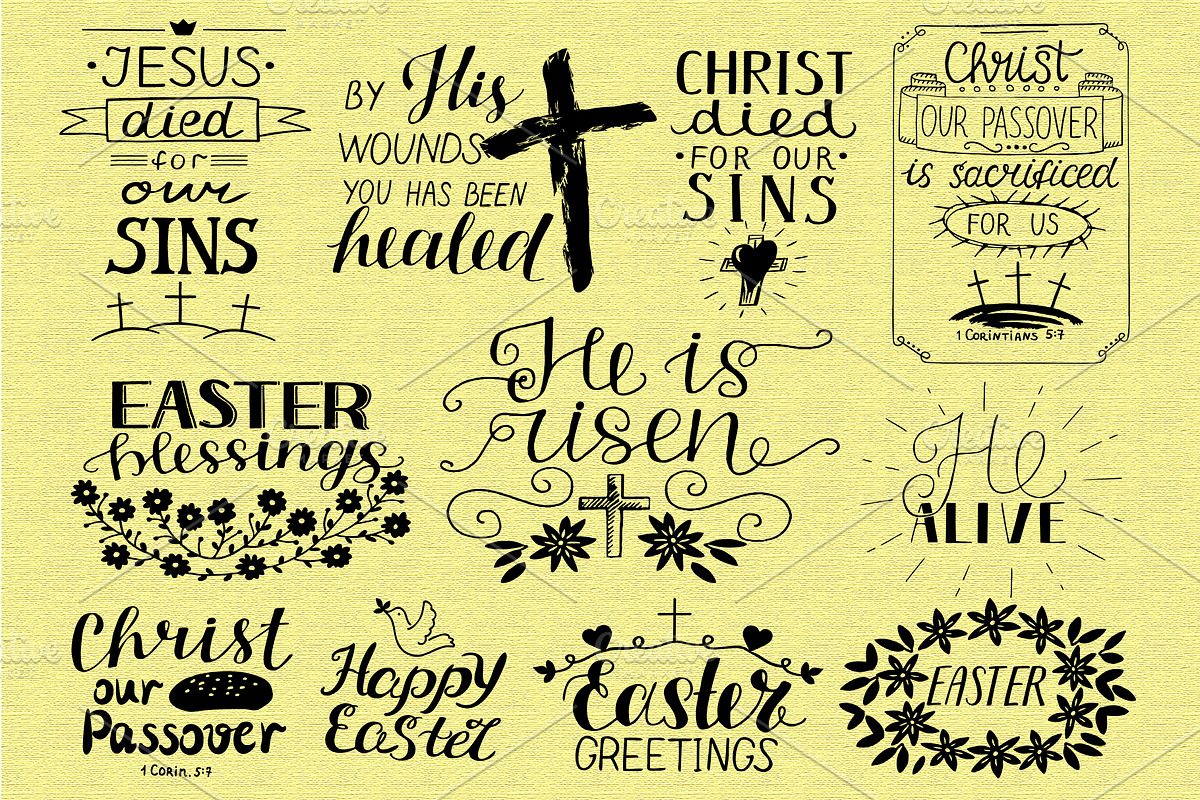 JESUS
died
for
our
SINS
BY His
WOUNDS
YOU HAS BEEN
healed
CHRIST
died
FOR OUR
SINS
Christ
OUR PASSOVER
is sacrificed
FOR US
1 CORINTHIANS 5:7
EASTER
blessings
He is
risen
He
ALIVE
Christ
our
Passover
1 CORIN. 5:7
Happy
Easter
Easter
GREETINGS
EASTER
Creative